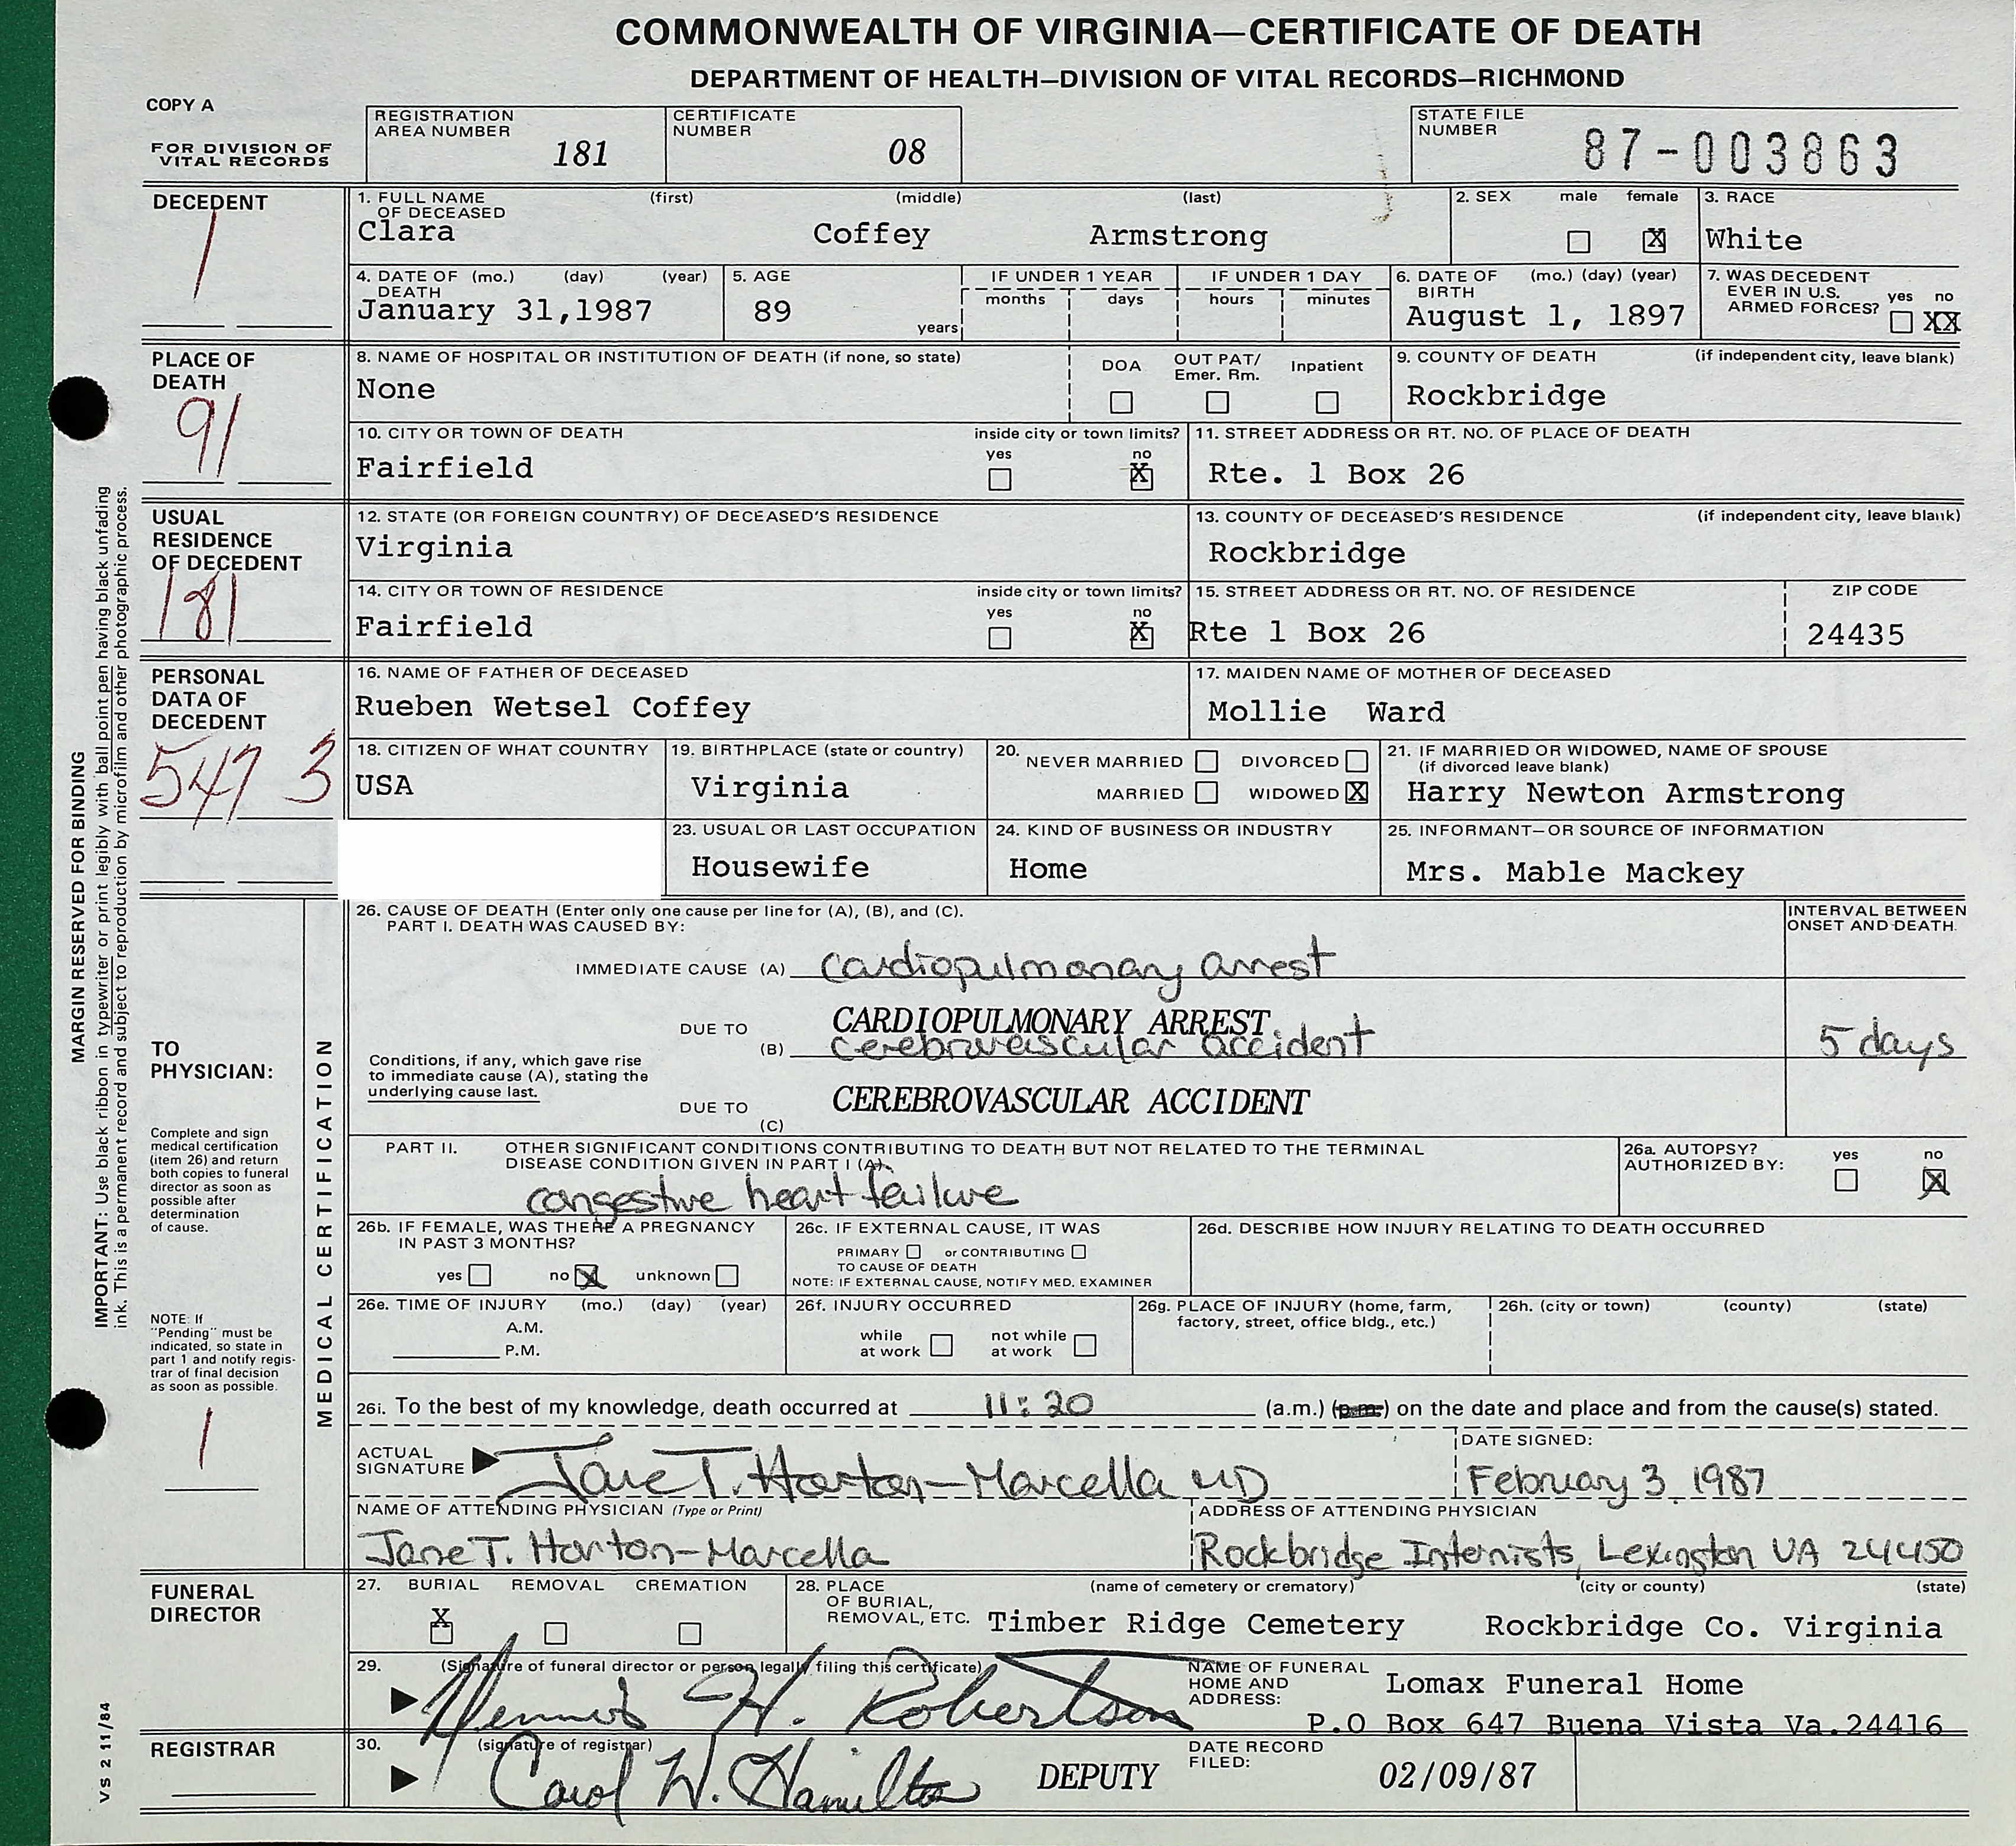 COMMONWEALTH OF VIRGINIA—CERTIFICATE OF DEATH
DEPARTMENT OF HEALTH—DIVISION OF VITAL RECORDS—RICHMOND
COPY A
FOR DIVISION OF
VITAL RECORDS
REGISTRATION
AREA NUMBER 181
CERTIFICATE
NUMBER 08
STATE FILE
NUMBER 87-003863
DECEDENT
1
1. FULL NAME (first) (middle) (last)
OF DECEASED
Clara Coffey Armstrong
2. SEX male female
X
3. RACE
White
4. DATE OF (mo.) (day) (year)
DEATH
January 31,1987
5. AGE
89 years
IF UNDER 1 YEAR
months days
IF UNDER 1 DAY
hours minutes
6. DATE OF (mo.) (day) (year)
BIRTH
August 1, 1897
7. WAS DECEDENT
EVER IN U.S.
ARMED FORCES? yes no
XX
PLACE OF
DEATH
91
8. NAME OF HOSPITAL OR INSTITUTION OF DEATH (if none, so state)
None
DOA OUT PAT/
Emer. Rm. Inpatient
9. COUNTY OF DEATH (if independent city, leave blank)
Rockbridge
10. CITY OR TOWN OF DEATH inside city or town limits?
yes no
Fairfield X
11. STREET ADDRESS OR RT. NO. OF PLACE OF DEATH
Rte. 1 Box 26
USUAL
RESIDENCE
OF DECEDENT
181
12. STATE (OR FOREIGN COUNTRY) OF DECEASED'S RESIDENCE
Virginia
13. COUNTY OF DECEASED'S RESIDENCE (if independent city, leave blank)
Rockbridge
14. CITY OR TOWN OF RESIDENCE inside city or town limits?
yes no
Fairfield X
15. STREET ADDRESS OR RT. NO. OF RESIDENCE
Rte 1 Box 26
ZIP CODE
24435
PERSONAL
DATA OF
DECEDENT
547 3
16. NAME OF FATHER OF DECEASED
Rueben Wetsel Coffey
17. MAIDEN NAME OF MOTHER OF DECEASED
Mollie Ward
18. CITIZEN OF WHAT COUNTRY
USA
19. BIRTHPLACE (state or country)
Virginia
20.
NEVER MARRIED DIVORCED
MARRIED WIDOWED X
21. IF MARRIED OR WIDOWED, NAME OF SPOUSE
(if divorced leave blank)
Harry Newton Armstrong
23. USUAL OR LAST OCCUPATION
Housewife
24. KIND OF BUSINESS OR INDUSTRY
Home
25. INFORMANT—OR SOURCE OF INFORMATION
Mrs. Mable Mackey
MARGIN RESERVED FOR BINDING
IMPORTANT: Use black ribbon in typewriter or print legibly with ball point pen having black unfading
ink. This is a permanent record and subject to reproduction by microfilm and other photographic process.
VS 2 11/84
TO
PHYSICIAN:
Complete and sign
medical certification
(item 26) and return
both copies to funeral
director as soon as
possible after
determination
of cause.
NOTE: If
"Pending" must be
indicated, so state in
part 1 and notify regis-
trar of final decision
as soon as possible.
1
MEDICAL CERTIFICATION
26. CAUSE OF DEATH (Enter only one cause per line for (A), (B), and (C).
PART I. DEATH WAS CAUSED BY:
INTERVAL BETWEEN
ONSET AND DEATH.
IMMEDIATE CAUSE (A) cardiopulmonary arrest
CARDIOPULMONARY ARREST
DUE TO
(B) cerebrovascular accident 5 days
Conditions, if any, which gave rise
to immediate cause (A), stating the
underlying cause last.
CEREBROVASCULAR ACCIDENT
DUE TO
(C)
PART II. OTHER SIGNIFICANT CONDITIONS CONTRIBUTING TO DEATH BUT NOT RELATED TO THE TERMINAL
DISEASE CONDITION GIVEN IN PART I (A).
congestive heart failure
26a. AUTOPSY? yes no
AUTHORIZED BY: X
26b. IF FEMALE, WAS THERE A PREGNANCY
IN PAST 3 MONTHS?
yes no X unknown
26c. IF EXTERNAL CAUSE, IT WAS
PRIMARY or CONTRIBUTING
TO CAUSE OF DEATH
NOTE: IF EXTERNAL CAUSE, NOTIFY MED. EXAMINER
26d. DESCRIBE HOW INJURY RELATING TO DEATH OCCURRED
26e. TIME OF INJURY (mo.) (day) (year)
A.M.
P.M.
26f. INJURY OCCURRED
while
at work not while
at work
26g. PLACE OF INJURY (home, farm,
factory, street, office bldg., etc.)
26h. (city or town) (county) (state)
26i. To the best of my knowledge, death occurred at 11:20 (a.m.) (p.m.) on the date and place and from the cause(s) stated.
ACTUAL
SIGNATURE Jane T. Horton-Marcella MD
DATE SIGNED:
February 3, 1987
NAME OF ATTENDING PHYSICIAN (Type or Print)
Jane T. Horton-Marcella
ADDRESS OF ATTENDING PHYSICIAN
Rockbridge Internists, Lexington VA 24450
FUNERAL
DIRECTOR
27. BURIAL REMOVAL CREMATION
X
28. PLACE (name of cemetery or crematory) (city or county) (state)
OF BURIAL,
REMOVAL, ETC. Timber Ridge Cemetery Rockbridge Co. Virginia
29. (Signature of funeral director or person legally filing this certificate)
Dennis H. Robertson
NAME OF FUNERAL
HOME AND
ADDRESS:
Lomax Funeral Home
P.O Box 647 Buena Vista Va.24416
REGISTRAR
30. (signature of registrar)
Carol W. Hamilton DEPUTY
DATE RECORD
FILED: 02/09/87